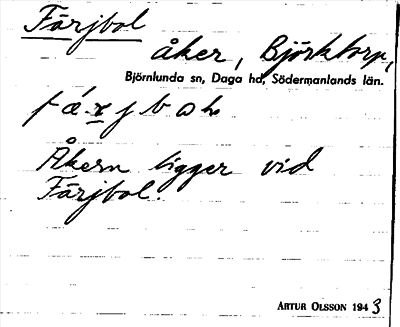 Färjbol
åker, Björktorp,
Björnlunda sn, Daga hd, Södermanlands län.
Åkern ligger vid
Färjbol.
ARTUR OLSSON 1943